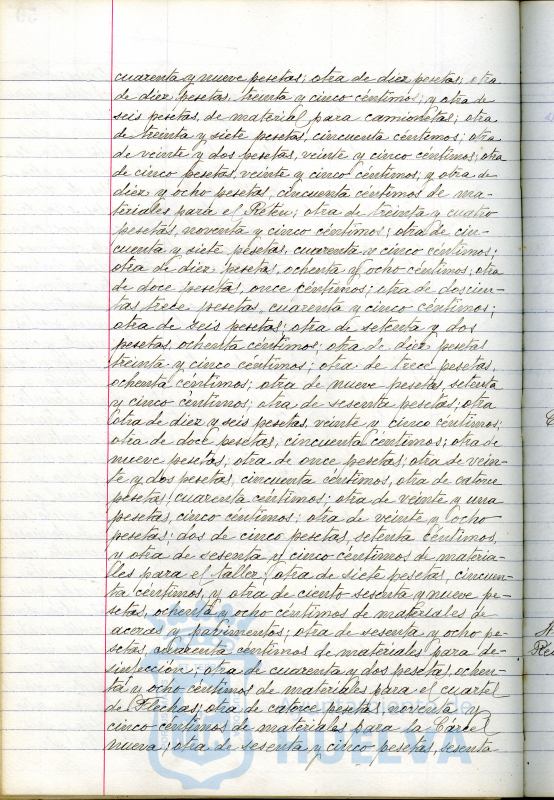 cuarenta y nueve pesetas; otra de diez pesetas; otra
de diez pesetas, treinta y cinco céntimos; y otra de
seis pesetas, de material para camionetas; otra
de treinta y siete pesetas, cincuenta céntimos; otra
de veinte y dos pesetas, veinte y cinco céntimos; otra
de cinco pesetas, veinte y cinco céntimos, y otra de
diez y ocho pesetas, cincuenta céntimos de ma-
teriales para el Reten; otra de treinta y cuatro
pesetas, noventa y cinco céntimos; otra de cin-
cuenta y siete pesetas, cuarenta y cinco céntimos;
otra de diez pesetas, ochenta y ocho céntimos; otra
de doce pesetas, once céntimos; otra de doscien-
tas trece pesetas, cuarenta y cinco céntimos;
otra de seis pesetas; otra de setenta y dos
pesetas, ochenta céntimos; otra de diez pesetas
treinta y cinco céntimos; otra de trece pesetas,
ochenta céntimos; otra de nueve pesetas, setenta
y cinco céntimos; otra de sesenta pesetas; otra
otra de diez y seis pesetas, veinte y cinco céntimos;
otra de doce pesetas, cincuenta céntimos; otra de
nueve pesetas; otra de once pesetas; otra de vein-
te y dos pesetas, cincuenta céntimos, otra de catorce
pesetas, cuarenta céntimos; otra de veinte y una
pesetas, cinco céntimos; otra de veinte y ocho
pesetas; dos de cinco pesetas, setenta céntimos,
y otra de sesenta y cinco céntimos de materia-
lles para el taller; otra de siete pesetas, cincuen-
ta céntimos, y otra de ciento sesenta y nueve pe-
setas, ochenta y ocho céntimos de materiales de
aceras y pabimentos; otra de sesenta y ocho pe-
setas, cuarenta céntimos de materiales para de-
sinfección; otra de cuarenta y dos pesetas, ochen-
ta y ocho céntimos de materiales para el cuartel
de Flechas; otra de catorce pesetas, noventa y
cinco céntimos de materiales para la Cárcel
nueva; otra de sesenta y cinco pesetas, sesenta
HUELVA